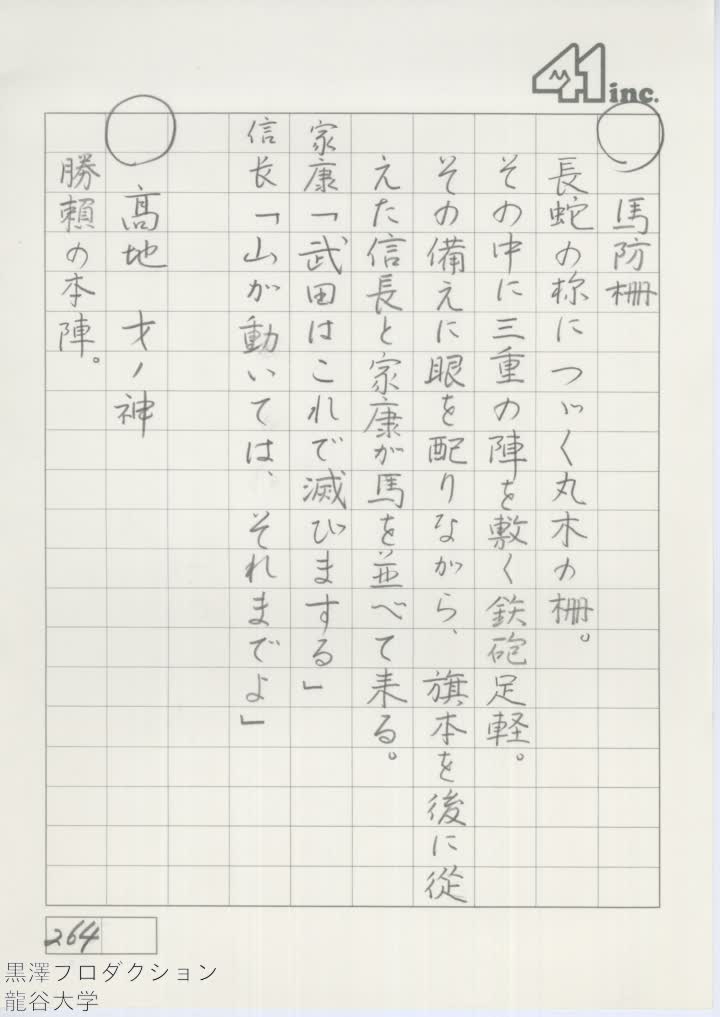 41 inc.
○ 馬防柵
長蛇の様につゞく丸木の柵。
その中に三重の陣を敷く鉄砲足軽。
その備えに眼を配りながら、旗本を後に従
えた信長と家康が馬を並べて来る。
家康「武田はこれで滅びまする」
信長「山が動いては、それまでよ」
○ 高地 才ノ神
勝頼の本陣。
264
黒澤プロダクション
龍谷大学